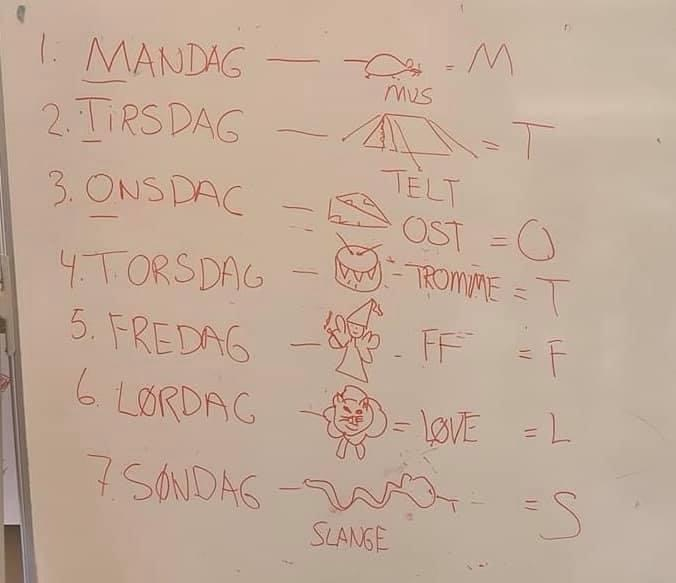 1. MANDAG — = M
MUS
2. TIRSDAG — = T
TELT
3. ONSDAG = OST = O
4. TORSDAG — - TROMME = T
5. FREDAG — - FF = F
6. LØRDAG — = LØVE = L
7. SØNDAG — - = S
SLANGE